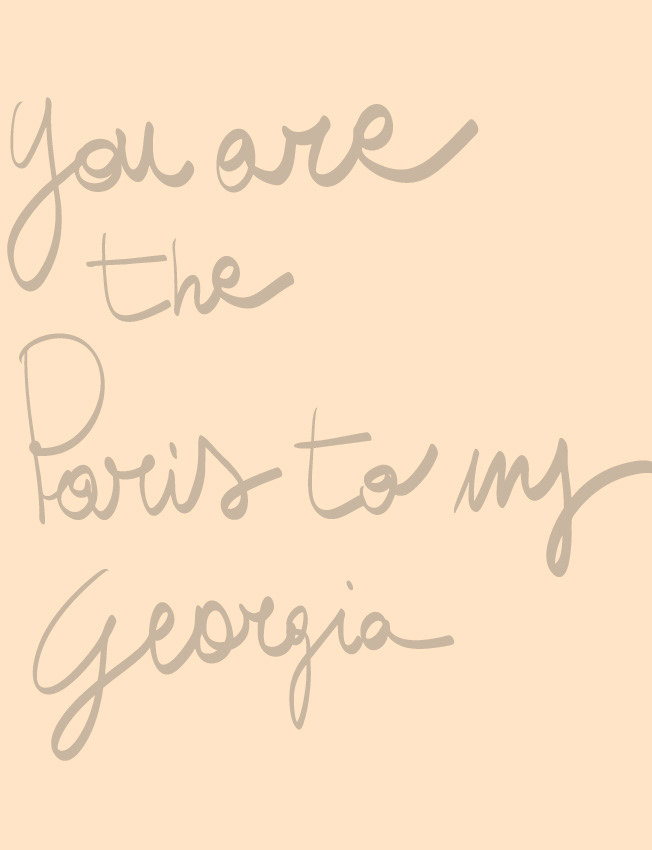 You are
the
Paris to my
Georgia